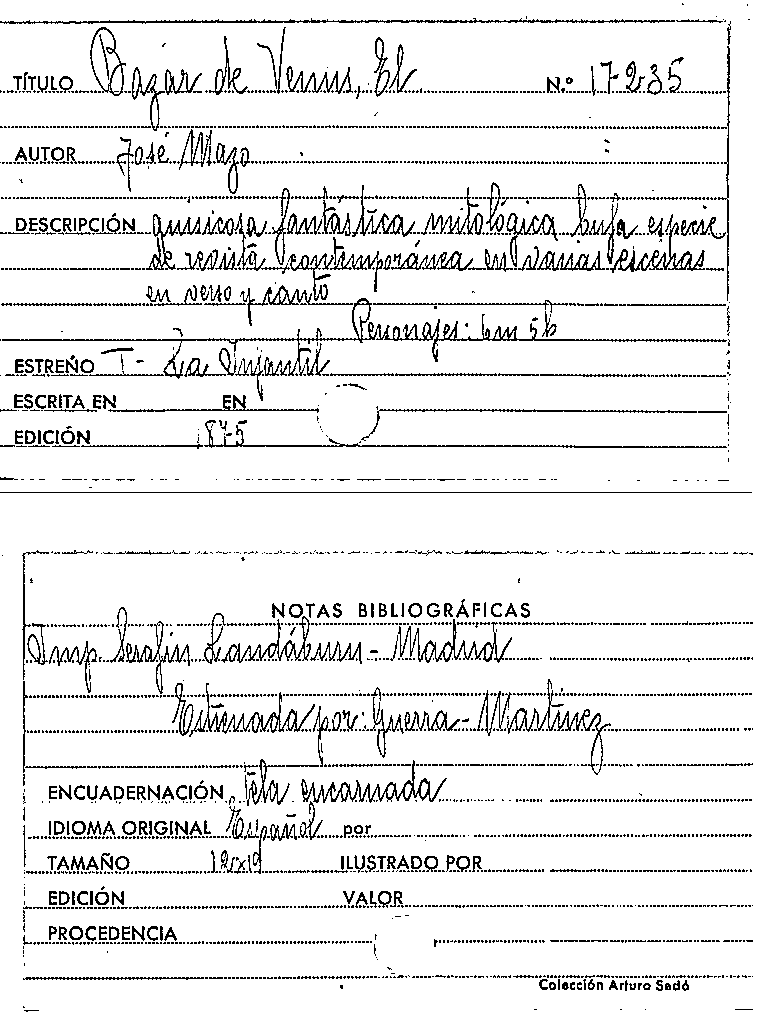 TÍTULO Bazar de Venus, El N.º 17-2-35
AUTOR José Mazo
DESCRIPCIÓN quisicosa fantástica mitológica bufa especie
de revista contemporánea en varias escenas
en verso y canto
Personajes: 6m 5h
ESTREÑO T- La Infantil
ESCRITA EN EN
EDICIÓN 1875
NOTAS BIBLIOGRÁFICAS
Imp. Serafín Landáburu - Madrid
Estrenada por: Guerra - Martínez
ENCUADERNACIÓN tela encarnada
IDIOMA ORIGINAL Español por
TAMAÑO 12x19 ILUSTRADO POR
EDICIÓN VALOR
PROCEDENCIA
Colección Arturo Sedó